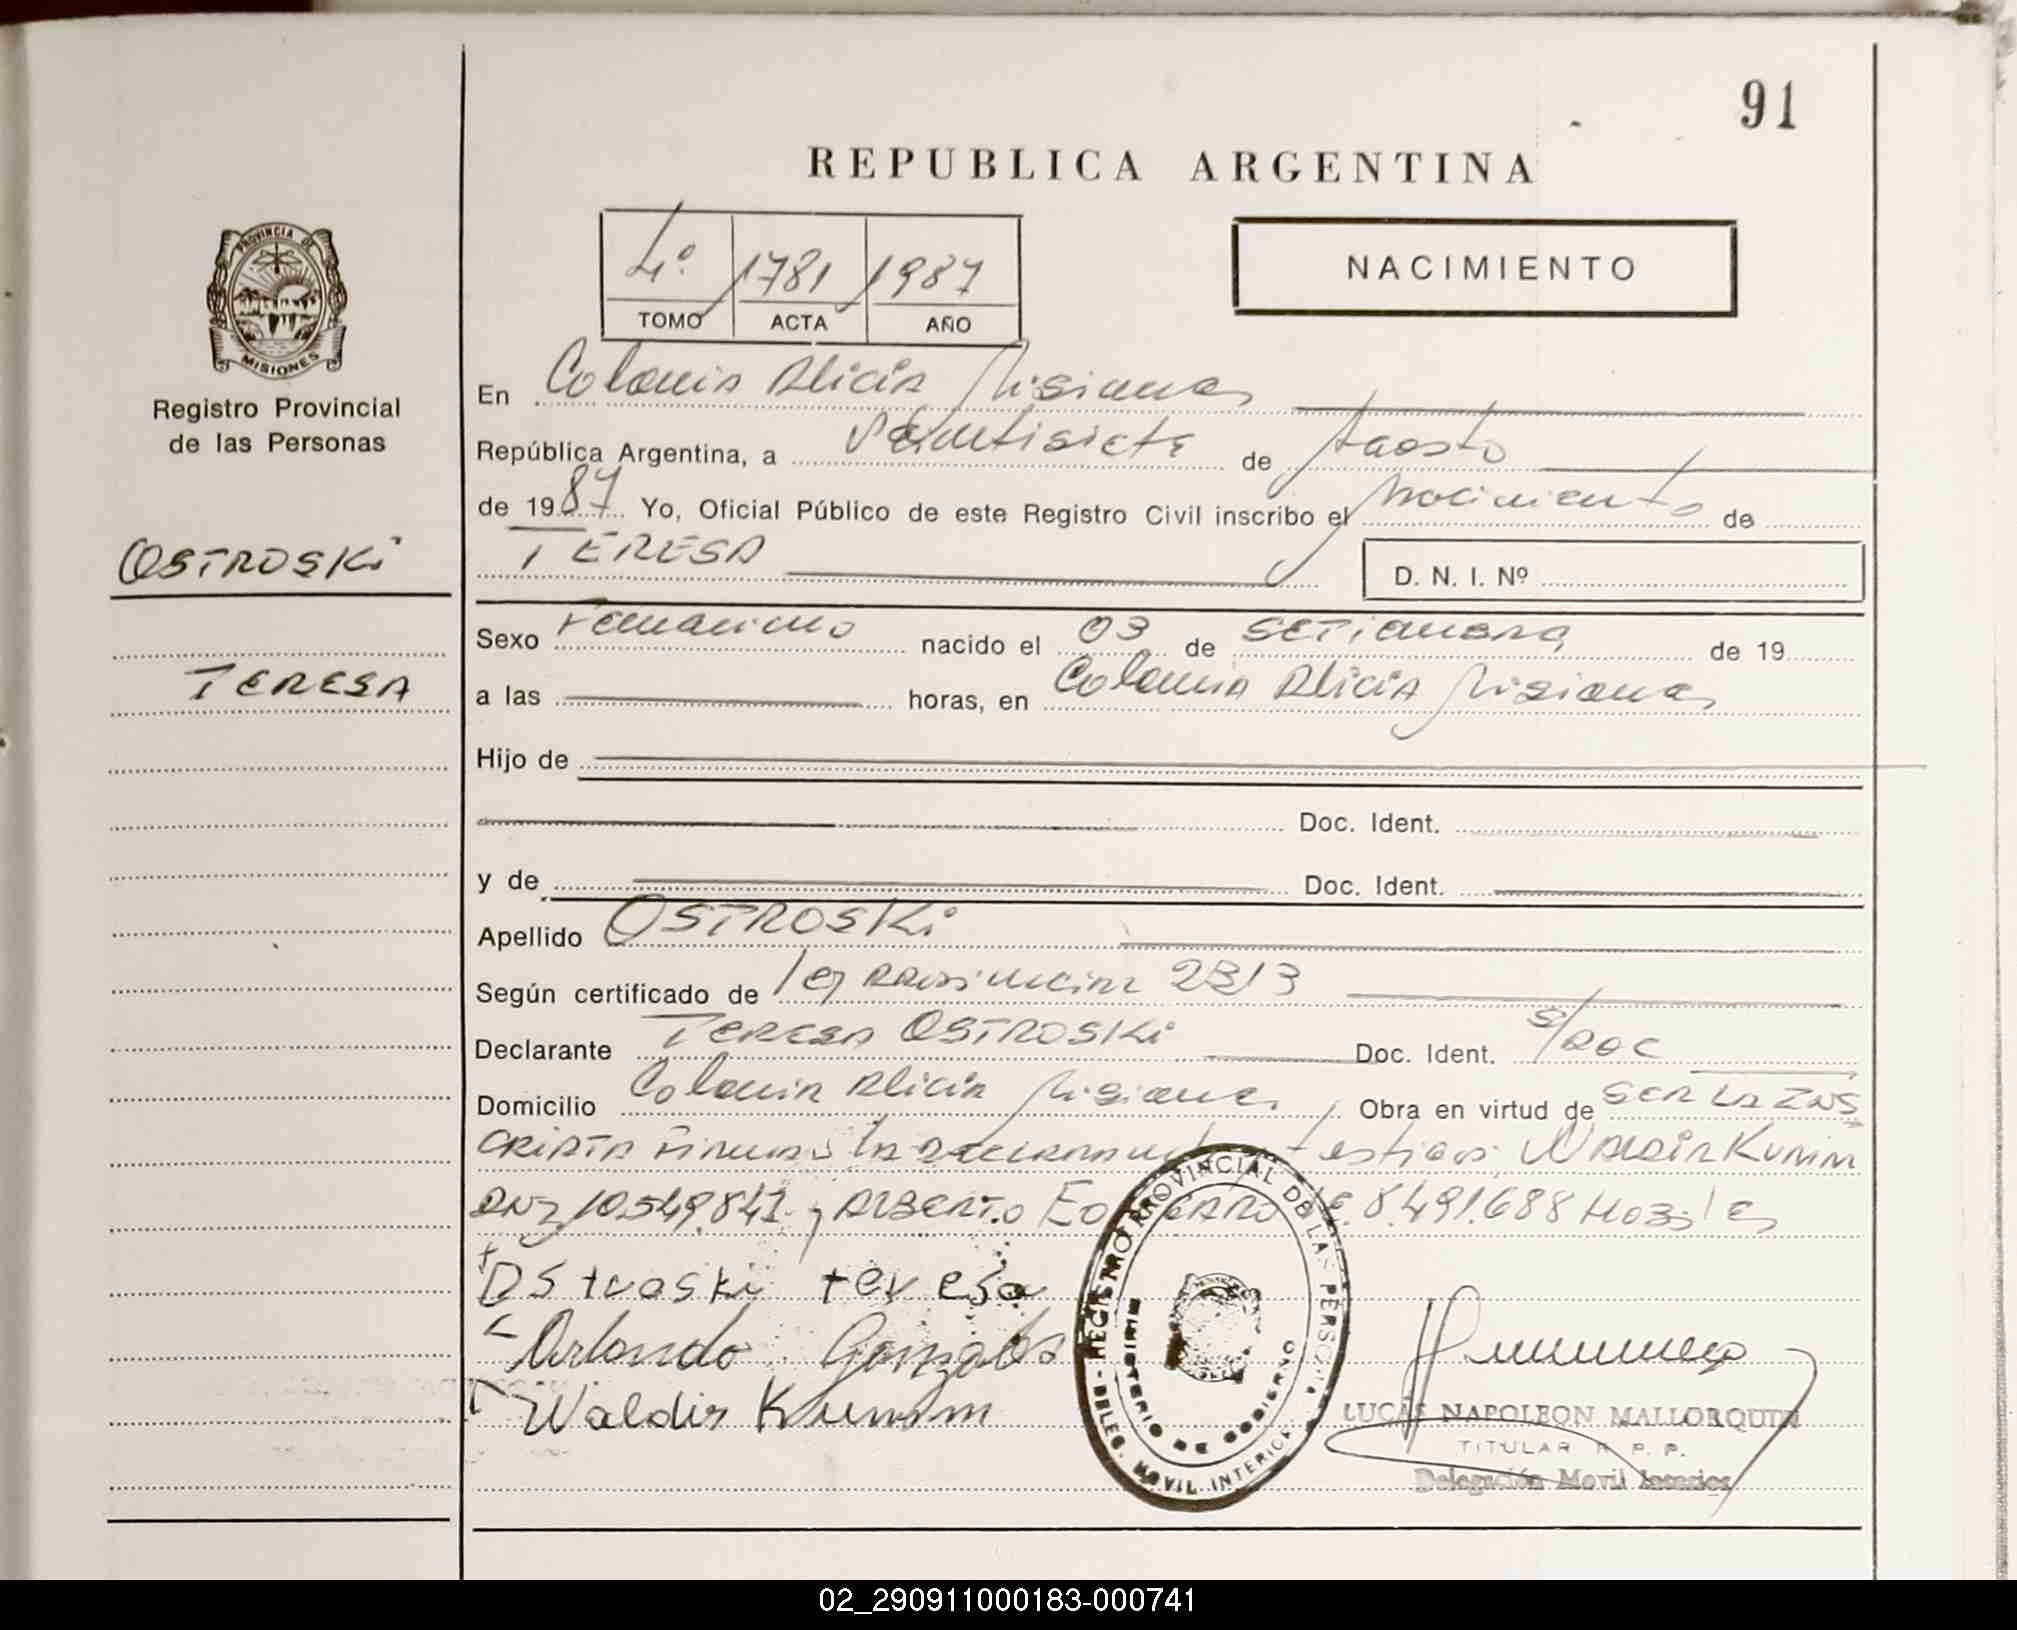 91
REPUBLICA ARGENTINA
4º 1781 1987
TOMO ACTA AÑO
NACIMIENTO
PROVINCIA DE MISIONES
Registro Provincial
de las Personas
OSTROSKI
TERESA
En Colonia Alicia Misiones
República Argentina, a Veintisiete de Agosto
de 1987 Yo, Oficial Público de este Registro Civil inscribo el Nacimiento de
TERESA D. N. I. Nº
Sexo Femenino nacido el 03 de SETIEMBRE de 19
a las horas, en Colonia Alicia Misiones
Hijo de
Doc. Ident.
y de Doc. Ident.
Apellido OSTROSKi
Según certificado de ley provincial 2313
Declarante TERESA OSTROSKi Doc. Ident. S/DOC
Domicilio Colonia Alicia Misiones Obra en virtud de SER LA INS
CRIPTA Firman la declarante testigos Waldir Kumm
DNI 10.549.841 y Alberto 8.491.688
Ostroski teresa
Orlando Gonzales
Waldir Kumm
REGISTRO PROVINCIAL DE LAS PERSONAS
MINISTERIO DE GOBIERNO
DELEG. MOVIL INTERIOR
LUCAS NAPOLEON MALLORQUIN
TITULAR R. P. P.
Delegación Movil Interior
02_290911000183-000741